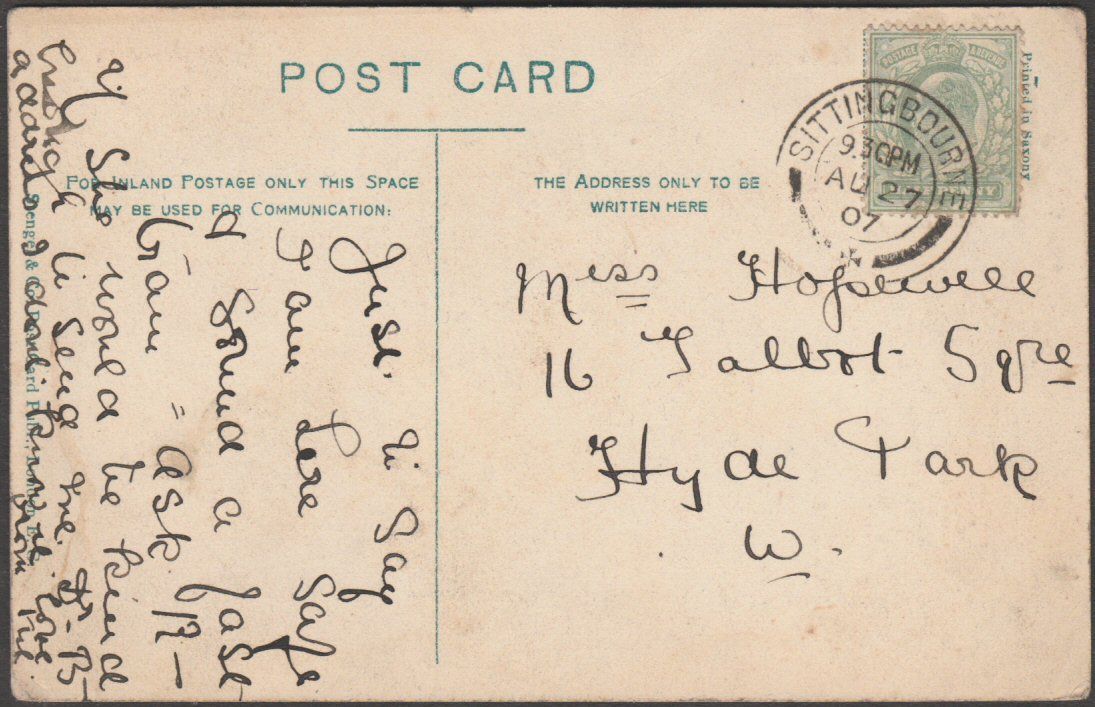 POST CARD
FOR INLAND POSTAGE ONLY THIS SPACE
MAY BE USED FOR COMMUNICATION:
THE ADDRESS ONLY TO BE
WRITTEN HERE
Printed in Saxony
POSTAGE REVENUE
PENNY
SITTINGBOURNE
9.30PM
AU 27
07
Miss Hopewell
16 Talbot Sqre
Hyde Park
W.
Just to say
I am here safe
& found a fast
train = ask R-
if she would be kind
enough to send me Dr-B-
address I don't know it. love
from